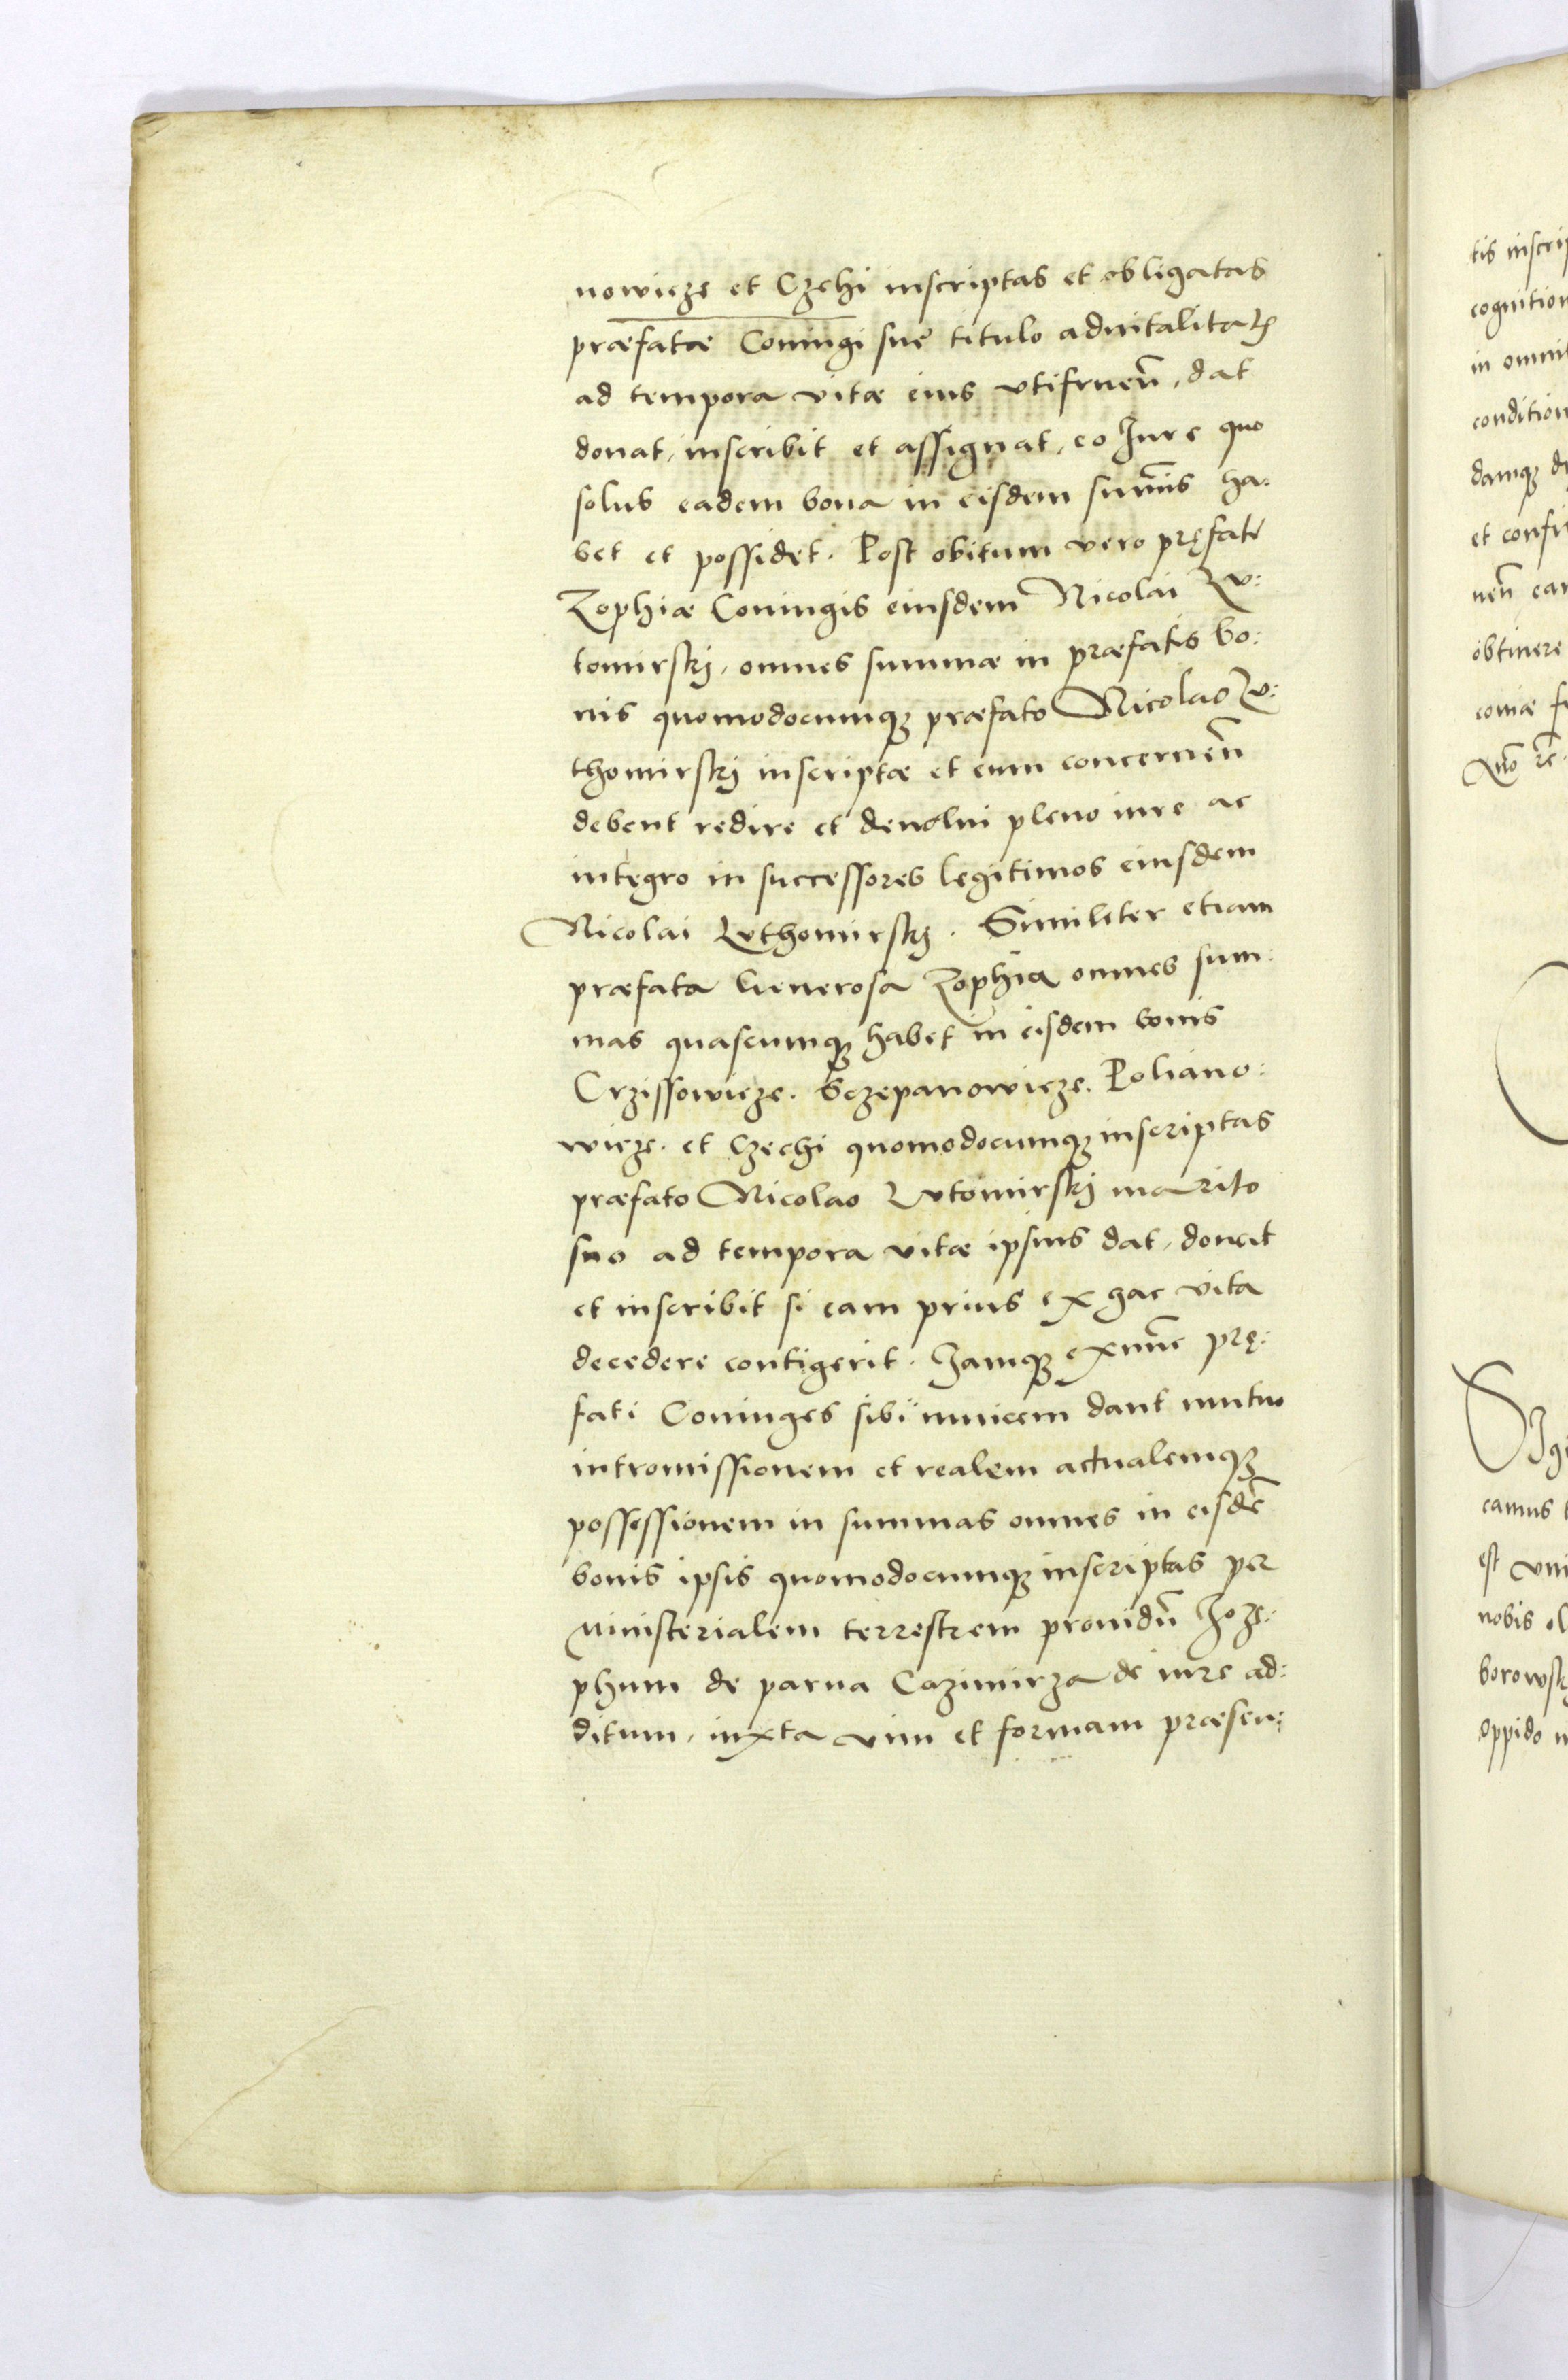 nowicze et Czehi inscriptas et obligatas
præfatæ Coniugi sue titulo aduitalitatis
ad tempora vitæ eius vtifruen̄, dat
donat, inscribit et assignat, eo Jure quo
solus eadem bona in eisdem sum̄is ha:
bet et possidet. Post obitum vero pręfate
Zophiæ Coniugis eiusdem Nicolai Lv:
tomirskj, omnes summæ in præfatis bo:
nis quomodocumqꝫ præfato Nicolao Lv:
thomirskj inscriptæ et eum concernen̄
debent redire et deuolui pleno iure ac
integro in successores legitimos eiusdem
Nicolai Lvthomirskj. Similiter etiam
præfata Generosa Zophia omnes sum:
mas quascumqꝫ habet in eisdem bonis
Crzissowicze. Sczepanowicze. Poliano:
wicze. et Czechi quomodocumqꝫ inscriptas
præfato Nicolao Lvtomirskj marito
suo ad tempora vitæ ipsius dat, donat
et inscribit si eam prius ex hac vita
decedere contigerit. Jamqꝫ exnunc prę:
fati Coniuges sibi inuicem dant mutuo
intromissionem et realem actualemqꝫ
possessionem in summas omnes in eisdē
bonis ipsis quomodocumqꝫ inscriptas per
ministerialem terrestrem prouidū Joze:
phum de parua Cazimirza de iure ad:
ditum, iuxta vim et formam præsen:
tis inscrip
cognition
in omni
condition
damqꝫ
et confir
nen̄ ea
obtinere
coniæ
camus
est vni
nobis
borowsk
oppido